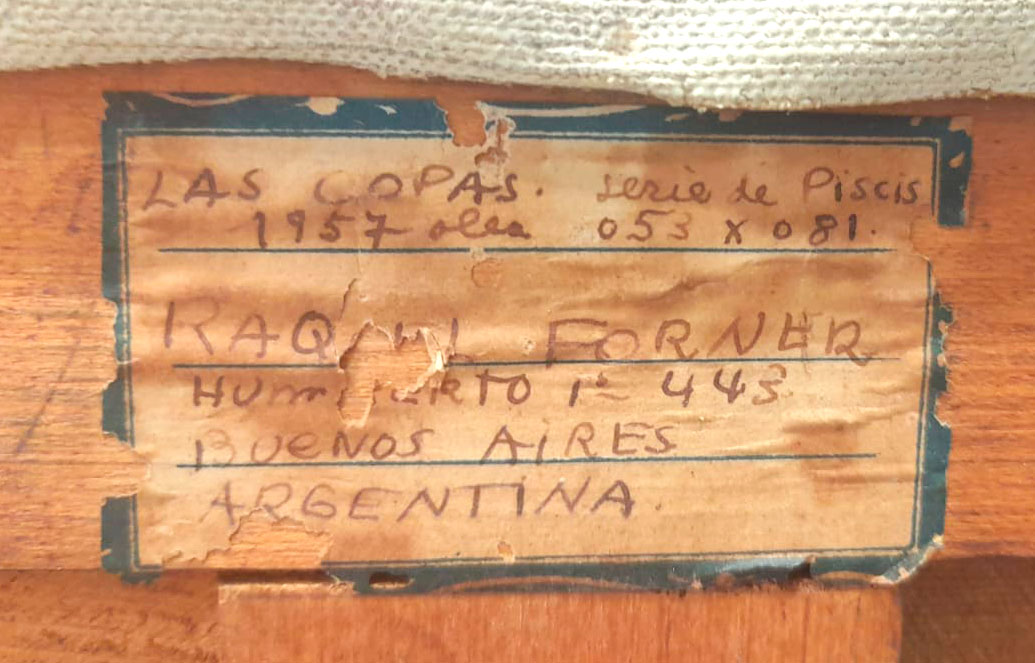 LAS COPAS. serie de Piscis
1957 oleo 053 x 081.
RAQUEL FORNER
HUMBERTO 1º 443
BUENOS AIRES
ARGENTINA.